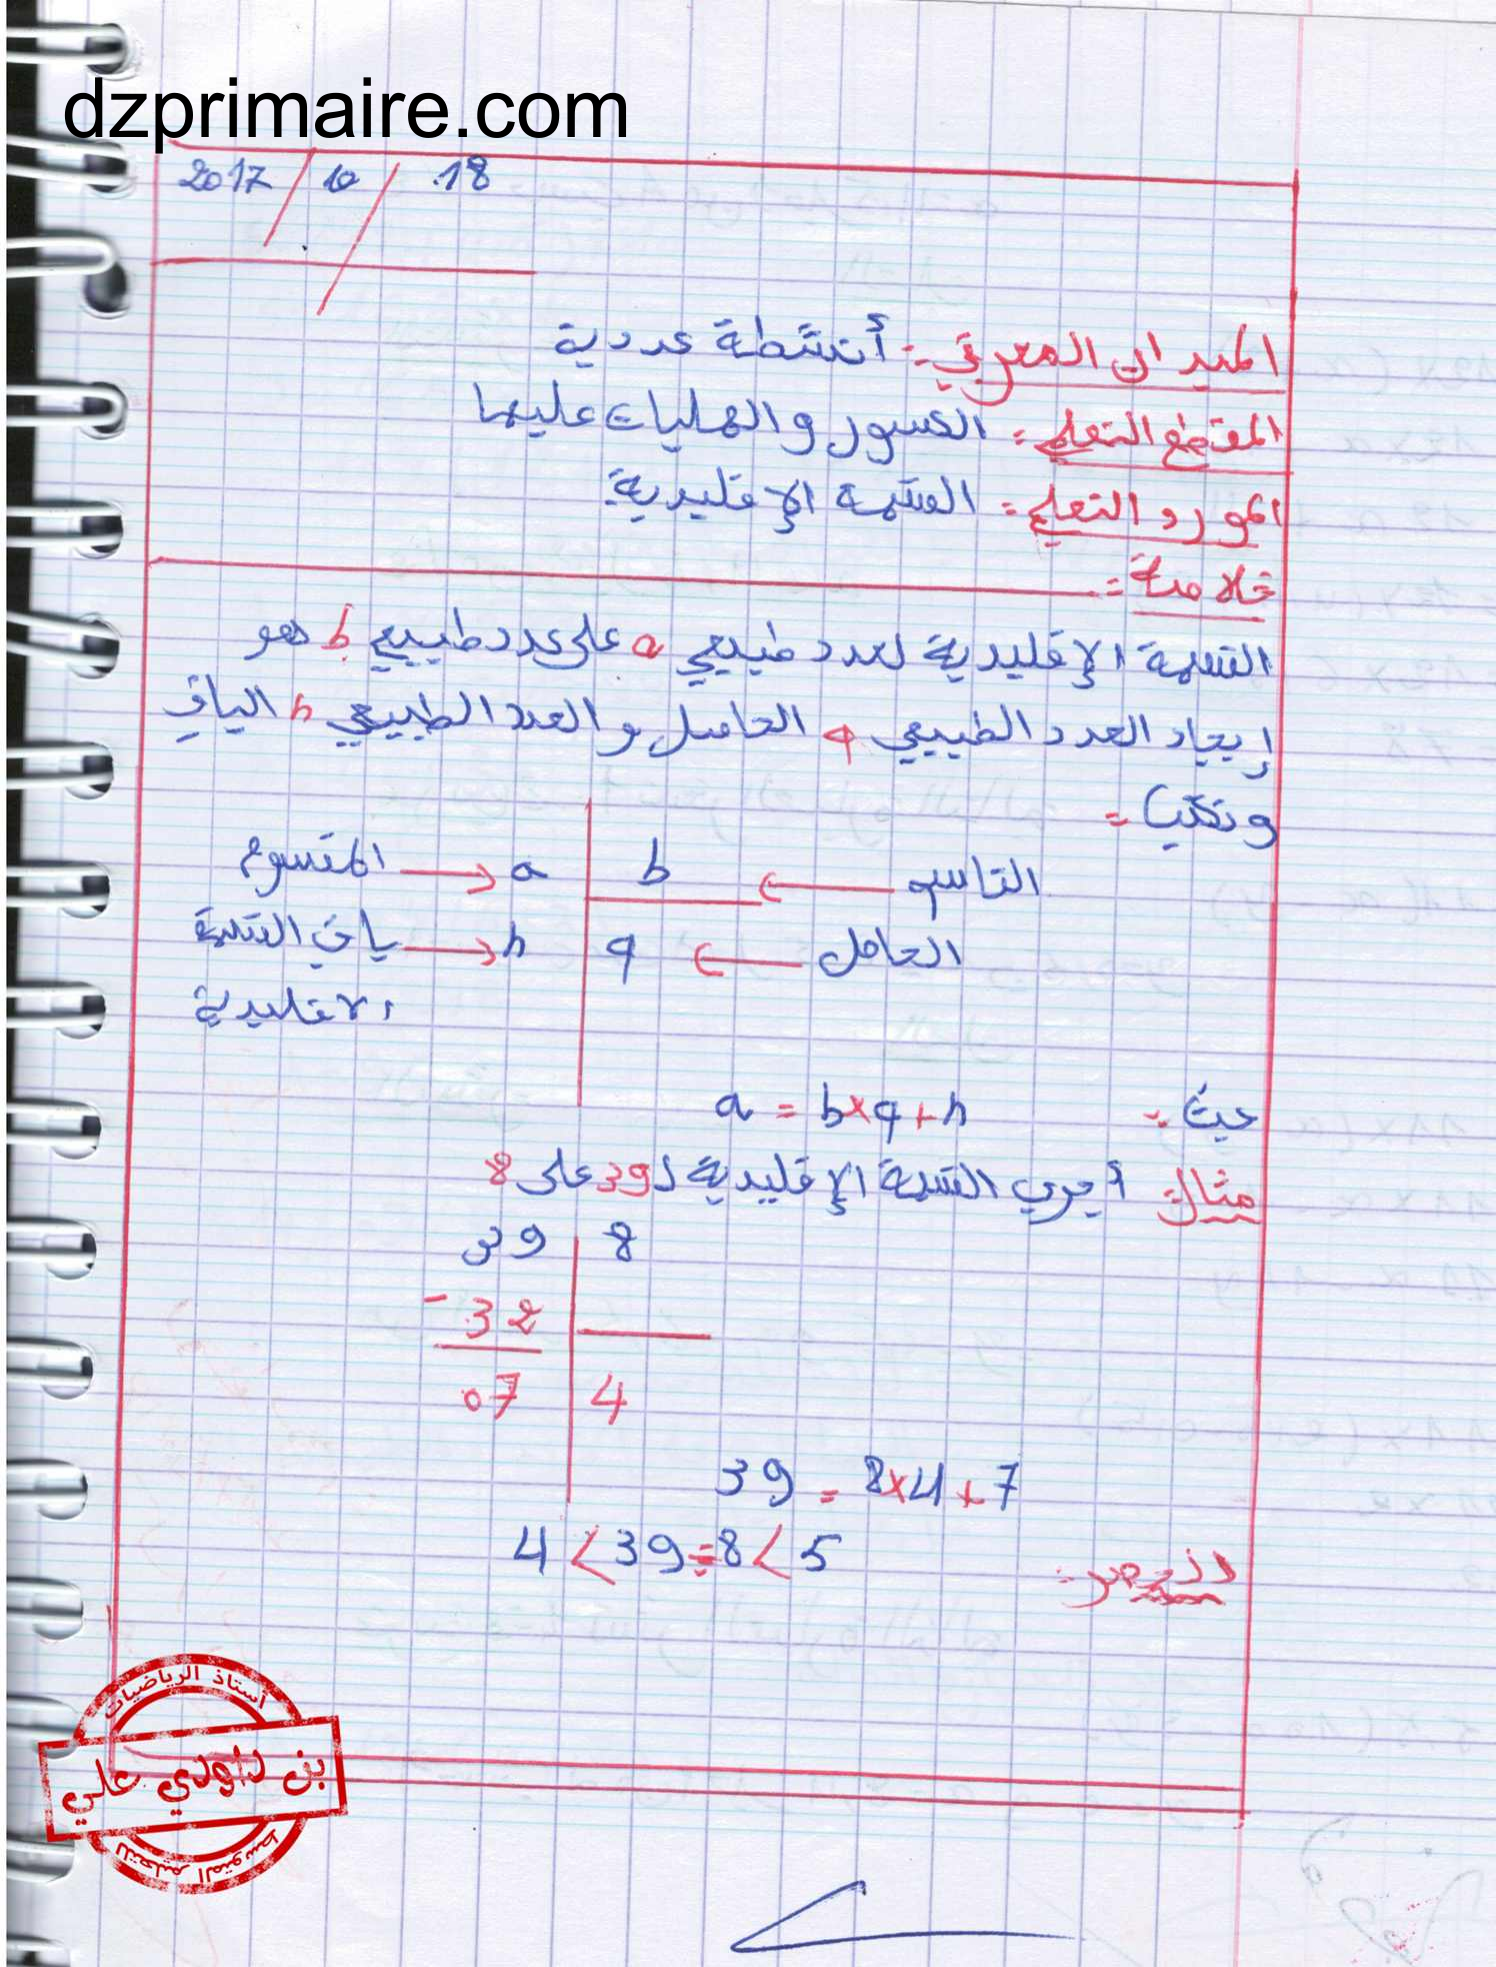 dzprimaire.com
2017 / 10 / 18
الميدان المعرفي: أنشطة عددية
المقطع التعلمي: الكسور والعمليات عليها
المورد التعلمي: القسمة الإقليدية
خلاصة:
القسمة الإقليدية لعدد طبيعي a على عدد طبيعي b هو
إيجاد العدد الطبيعي q الحاصل والعدد الطبيعي r الباقي
ونكتب:
المقسوم → a | b ← القاسم
باقي القسمة → r | q ← الحاصل
الاقليدية
حيث: a = b×q+r
مثال: أجري القسمة الإقليدية لـ 39 على 8
39 | 8
- 32
07 | 4
39 = 8×4+7
الحصر: 4 < 39÷8 < 5
أستاذ الرياضيات
بن داودي علي
للتعليم المتوسط